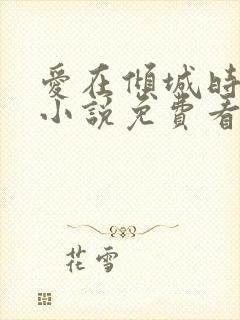 愛在傾城時
小說免費看
花雪